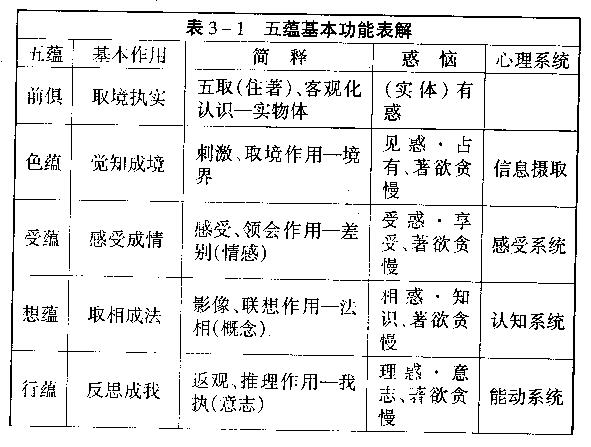 表 3-1 五蕴基本功能表解
五蕴 基本作用 简释 惑恼 心理系统
前俱 取境执实 五取(住著)、客观化 (实体)有
认识—实物体 惑
色蕴 觉知成境 刺激、取境作用—境 见惑·占 信息摄取
界 有、著欲贪
慢
受蕴 感受成情 感受、领会作用—差 受惑·享 感受系统
别(情感) 受、著欲贪
慢
想蕴 取相成法 影像、联想作用—法 相惑·知 认知系统
相(概念) 识、著欲贪
慢
行蕴 反思成我 返观、推理作用—我 理惑·意 能动系统
执(意志) 志、著欲贪
慢